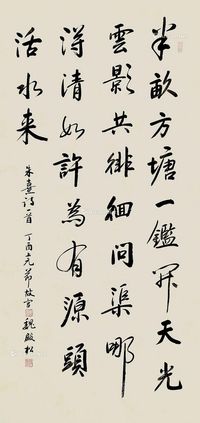 半畝方塘一鑑开天光
雲影共徘徊問渠哪
得清如許為有源頭
活水来
朱熹诗首 丁酉元節 魏殿松